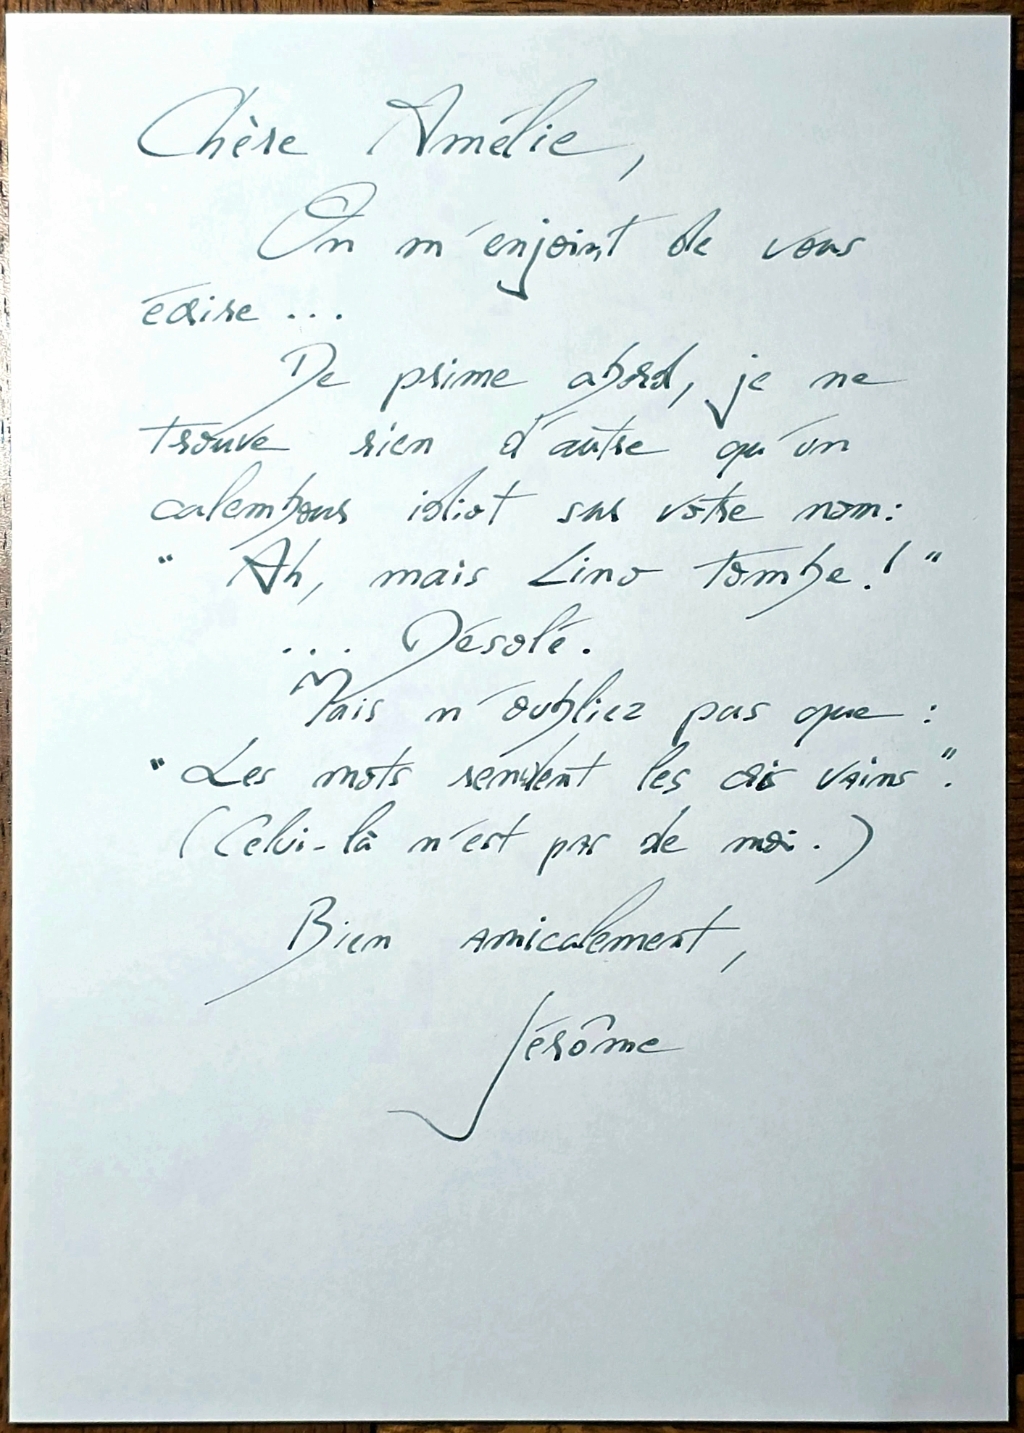 Chère Amélie,
On m'enjoint de vous
écrire ...
De prime abord, je ne
trouve rien d'autre qu'un
calembour idiot sur votre nom:
" Ah, mais Lino tombe ! "
... Désolé.
Mais n'oubliez pas que :
" Les mots rendent les cris vains ".
(Celui-là n'est pas de moi.)
Bien amicalement,
Jérôme